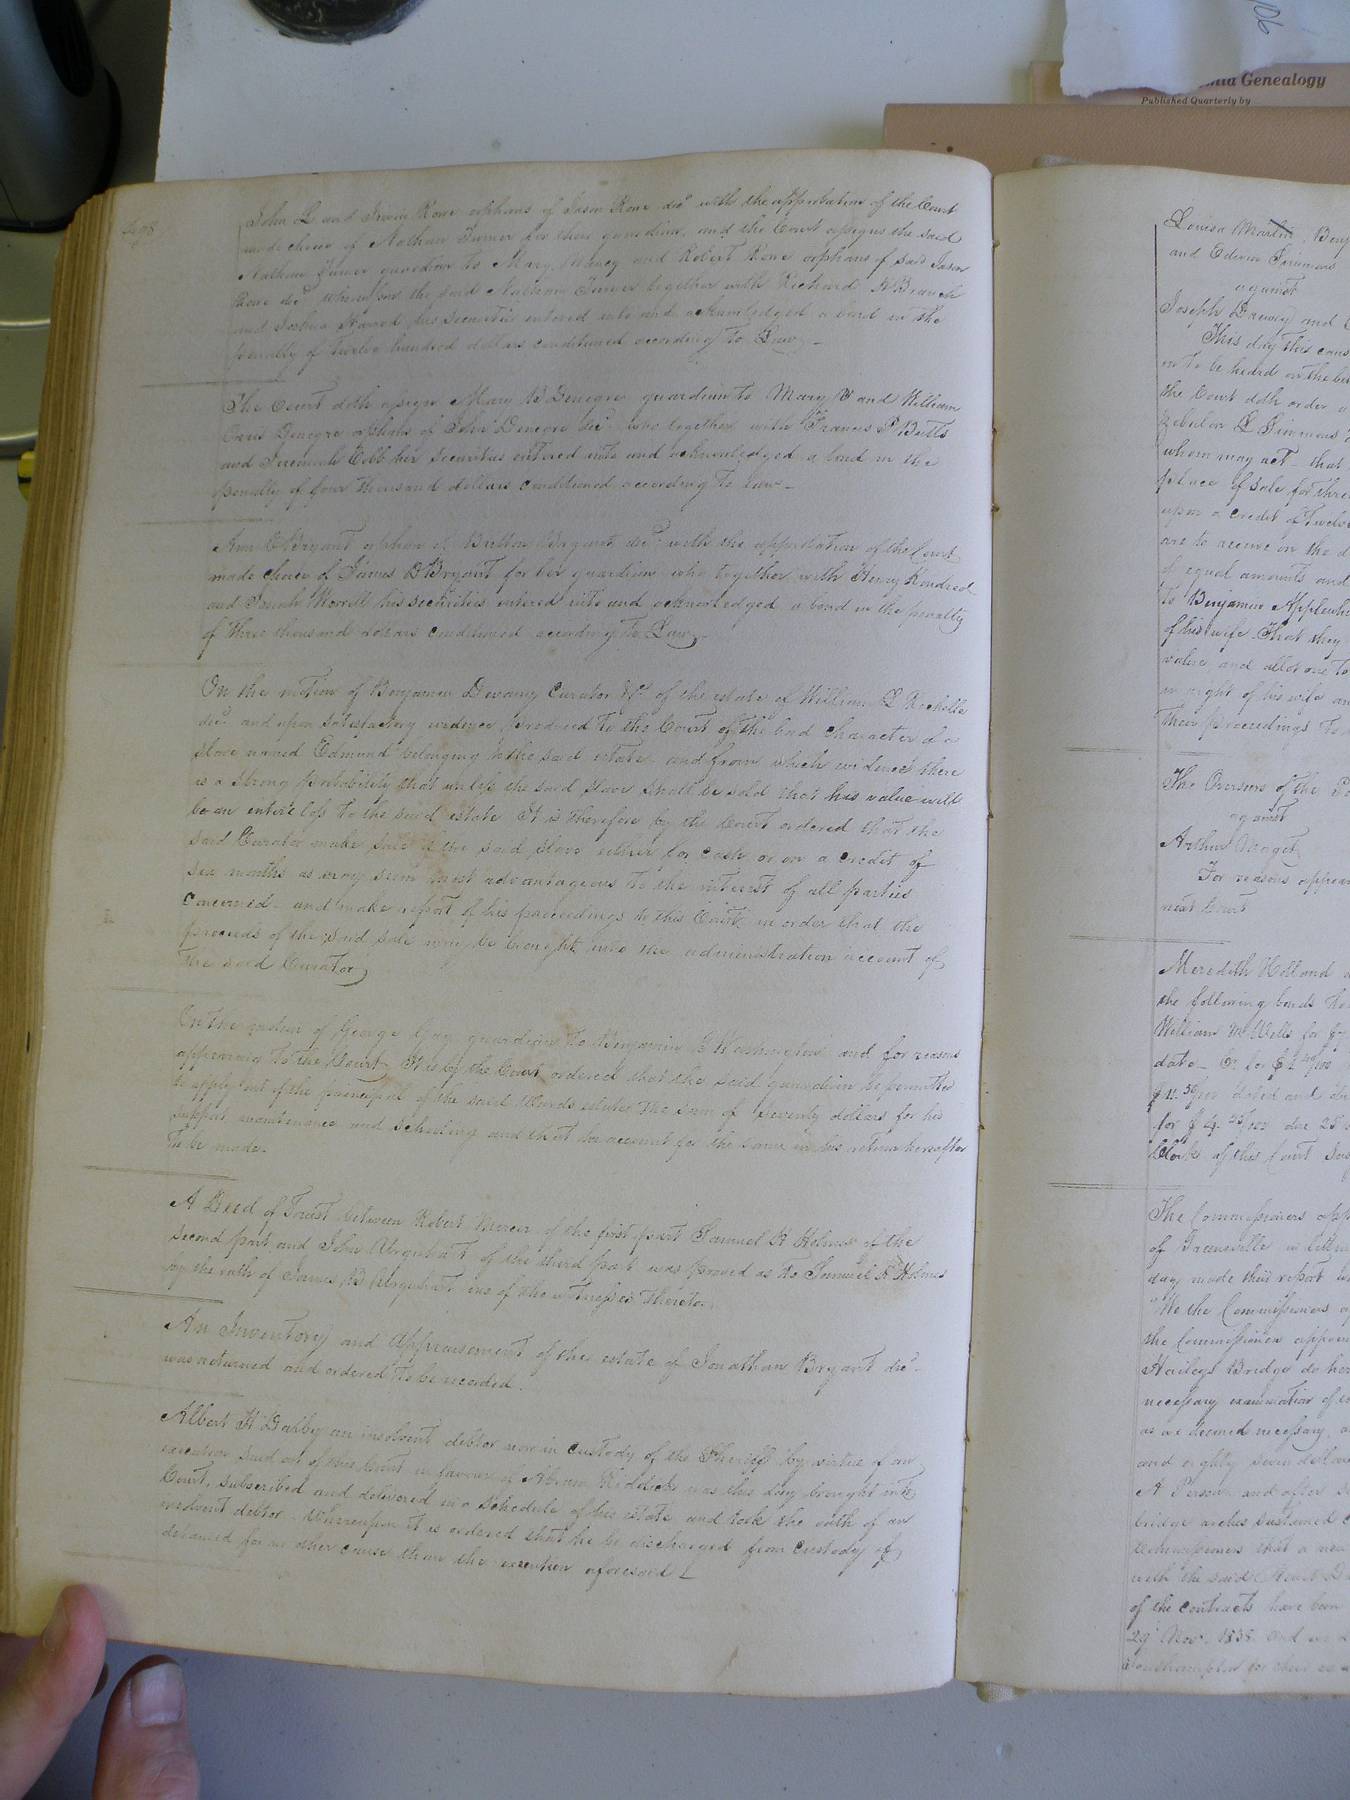 Genealogy
Published Quarterly by
John L and Irwin Rowe orphans of Jason Rowe decd with the approbation of the Court
made choice of Nathan Turner for their guardian, and the Court assigns the said
Nathan Turner guardian to Mary, Nancy and Robert Rowe orphans of said Jason
Rowe decd whereupon the said Nathan Turner together with Richard H Branch
and Joshua Harred his securities entered into and acknowledged a bond in the
penalty of twelve hundred dollars conditioned according to Law,—
The Court doth assign Mary B Denegre guardian to Mary V and William
Denegre orphans of John Denegre decd who together with Francis P Butts
and Jeremiah Cobb her securities entered into and acknowledged a bond in the
penalty of four thousand dollars conditioned according to law—
Ann C Bryant orphan of Britton Bryant decd with the approbation of the Court
made choice of James D Bryant for her guardian who together with Henry Kindred
and Josiah Worrell his securities entered into and acknowledged a bond in the penalty
of three thousand dollars conditioned according to Law—
On the motion of Benjamin Devany Curator &c of the estate of William L Rochelle
decd and upon satisfactory evidence produced to the Court of the bad character of a
slave named Edmund belonging to the said estate and from which evidence there
is a strong probability that unless the said slave shall be sold that his value will
be an entire loss to the said estate It is therefore by the Court ordered that the
said Curator make sale of the said slave either for cash or on a credit of
six months as may seem most advantageous to the interest of all parties
concerned— and make report of his proceedings to this Court in order that the
proceeds of the said sale may be brought into the administration account of
the said Curator
On the motion of George Gray guardian to Benjamin Washington and for reasons
appearing to the Court It is by the Court ordered that the said guardian be permitted
to apply out of the principal of the said Wards estate the sum of seventy dollars for his
support maintenance and schooling and that he account for the same in his return hereafter
to be made—
A Deed of Trust between Robert Mercer of the first part Samuel H Holmes of the
second part and John Urquhart of the third part was proved as to Samuel H Holmes
by the oath of James B Urquhart one of the witnesses thereto.
An Inventory and Appraisement of the estate of Jonathan Bryant decd—
was returned and ordered to be recorded.
Albert H Darby an insolvent debtor now in custody of the Sheriff by virtue of an
execution sued out of this Court in favour of Abram Riddick was this day brought into
Court, subscribed and delivered in a schedule of his estate and took the oath of an
insolvent debtor. Whereupon it is ordered that he be discharged from custody if
detained for no other cause than the execution aforesaid—
Louisa Martin, Benj
and Edwin Simmons
against
Joseph Dewey and
This day this caus
on to be heard on the
the Court doth order
Zebulon L Simmons
whom may act— that
place of sale for three
upon a credit of Twelve
are to accrue on the d
of equal amounts and
to Benjamin Applewh
of his wife. That they
value, and allot one to
in right of his wife an
their proceedings to
The Overseers of the Po
against
Arthur Maget
For reasons appear
next Court
Meredith Holland
the following bonds
William M Wells for
date—
$11.50/100 dated and
for $4.25/100 due 25
Clerk of this Court
The Commissioners app
of Greensville
day made their report
"We the Commissioners
the Commissioners appoin
Haileys Bridge do her
necessary examination of
as we deemed necessary,
and eighty seven dollar
A Person and after
bridge arches sustained
commissioners that a new
with the said
of the contracts have been
29 Nov. 1838 and
Southampton for their